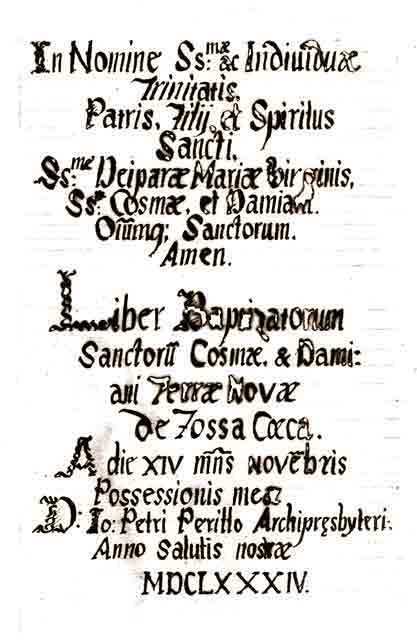 In Nomine Ss:mæ &c Individuæ
Trinitatis,
Patris, Filij, et Spiritus
Sancti,
Ss:mę Deiparæ Mariæ Virginis,
Ss: Cosmæ, et Damiani.
Oiūmq; Sanctorum.
Amen.
Liber Baptizatorum
Sanctorū Cosmæ, & Dami:
ani Terræ Novæ
de Fossa Cœca.
A die XIV mñs Novēbris
Possessionis meæ
D: Io: Petri Perillo Archipręsbyteri:
Anno Salutis nostræ
MDCLXXXIV.